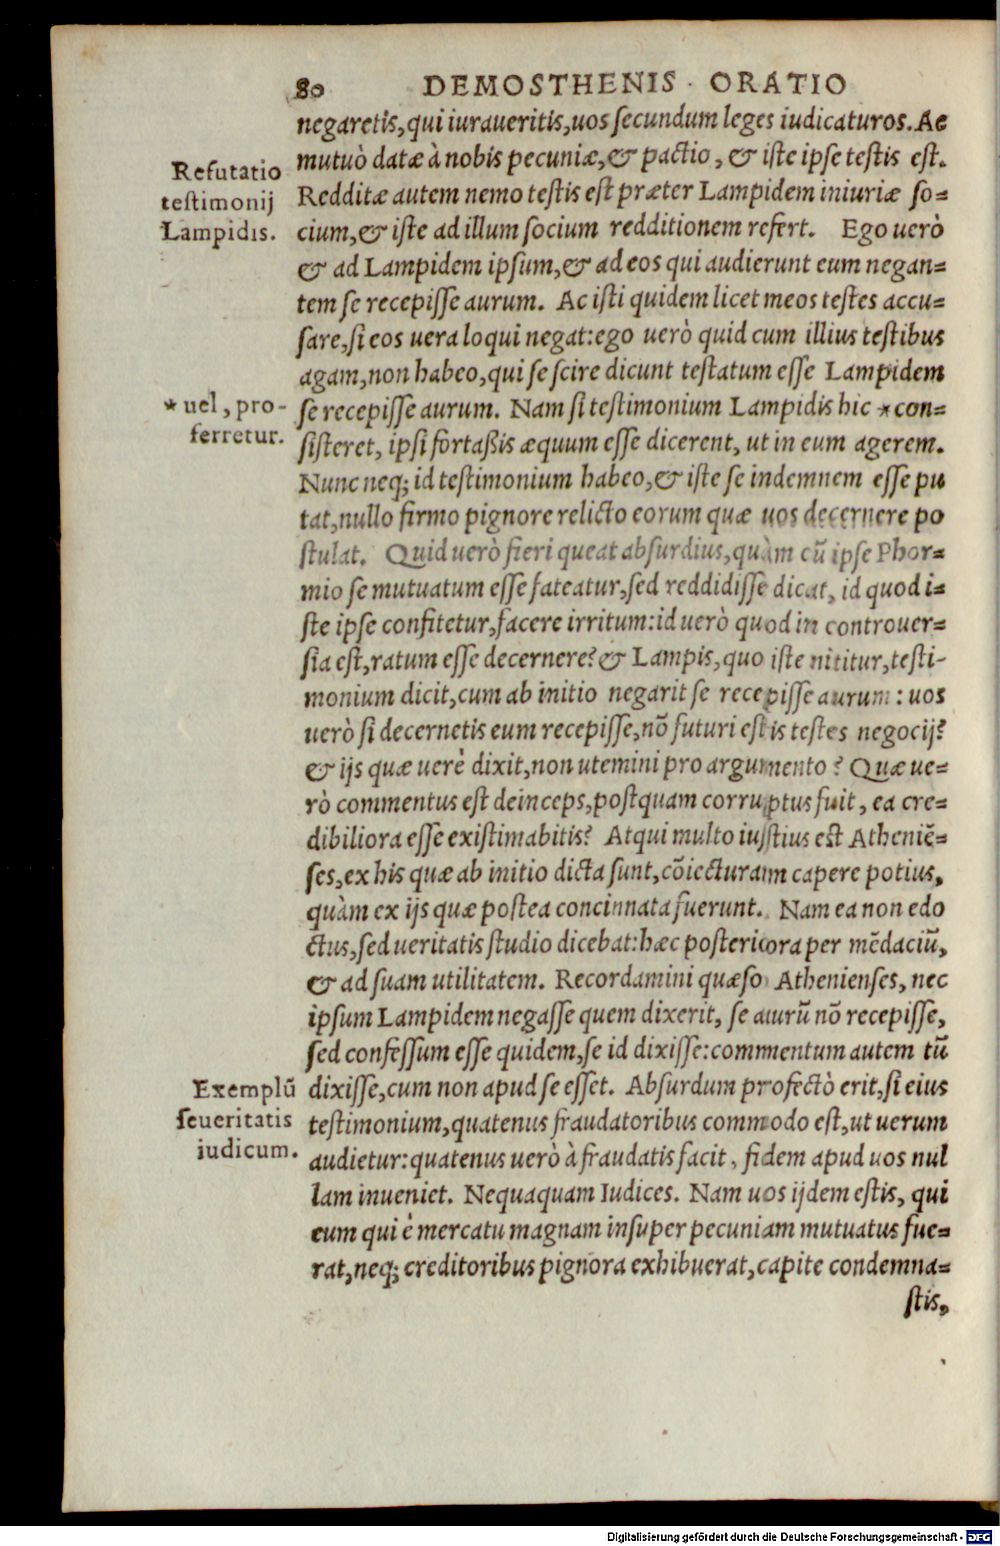 80 DEMOSTHENIS · ORATIO
negaretis, qui iuraueritis, uos secundum leges iudicaturos. Ac
mutuò datæ à nobis pecuniæ, & pactio, & iste ipse testis est.
Refutatio
testimonij
Lampidis.
Redditæ autem nemo testis est præter Lampidem iniuriæ so=
cium, & iste ad illum socium redditionem refert. Ego uerò
& ad Lampidem ipsum, & ad eos qui audierunt eum negan=
tem se recepisse aurum. Ac isti quidem licet meos testes accu=
sare, si eos uera loqui negat: ego uerò quid cum illius testibus
agam, non habeo, qui se scire dicunt testatum esse Lampidem
* uel, pro-
ferretur.
se recepisse aurum. Nam si testimonium Lampidis hic * con=
sisteret, ipsi fortaßis æquum esse dicerent, ut in eum agerem.
Nunc neq; id testimonium habeo, & iste se indemnem esse pu
tat, nullo firmo pignore relicto eorum quæ uos decernere po
stulat. Quid uerò fieri queat absurdius, quàm cũ ipse Phor=
mio se mutuatum esse fateatur, sed reddidisse dicat, id quod i=
ste ipse confitetur, facere irritum: id uerò quod in controuer=
sia est, ratum esse decernere? & Lampis, quo iste nititur, testi-
monium dicit, cum ab initio negarit se recepisse aurum: uos
uerò si decernetis eum recepisse, nõ futuri estis testes negocij?
& ijs quæ uerè dixit, non utemini pro argumento? Quæ ue=
rò commentus est deinceps, postquam corruptus fuit, ea cre=
dibiliora esse existimabitis? Atqui multo iustius est Atheniẽ=
ses, ex his quæ ab initio dicta sunt, cõiecturam capere potius,
quàm ex ijs quæ postea concinnata fuerunt. Nam ea non edo
ctus, sed ueritatis studio dicebat: hæc posteriora per mẽdaciũ,
& ad suam utilitatem. Recordamini quæso Athenienses, nec
ipsum Lampidem negasse quem dixerit, se aurũ nõ recepisse,
sed confessum esse quidem, se id dixisse: commentum autem tũ
Exemplũ
seueritatis
iudicum.
dixisse, cum non apud se esset. Absurdum profectò erit, si eius
testimonium, quatenus fraudatoribus commodo est, ut uerum
audietur: quatenus uerò à fraudatis facit, fidem apud uos nul
lam inueniet. Nequaquam Iudices. Nam uos ijdem estis, qui
eum qui è mercatu magnam insuper pecuniam mutuatus fue=
rat, neq; creditoribus pignora exhibuerat, capite condemna=
stis,
Digitalisierung gefördert durch die Deutsche Forschungsgemeinschaft - DFG